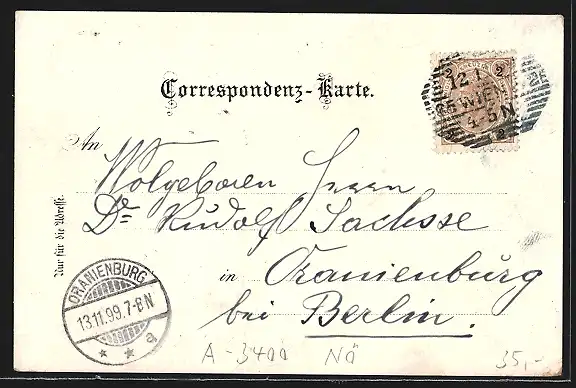 Correspondenz-Karte.
2 2
12 1
25 WIEN 25
4-5 N
An
Wolgeboren Herrn
Dr Rudolf Sachsse
in Oranienburg
bei Berlin.
Nur für die Adresse.
ORANIENBURG
13.11.99.7-8N
* * a
A-3400 NÖ 35,-